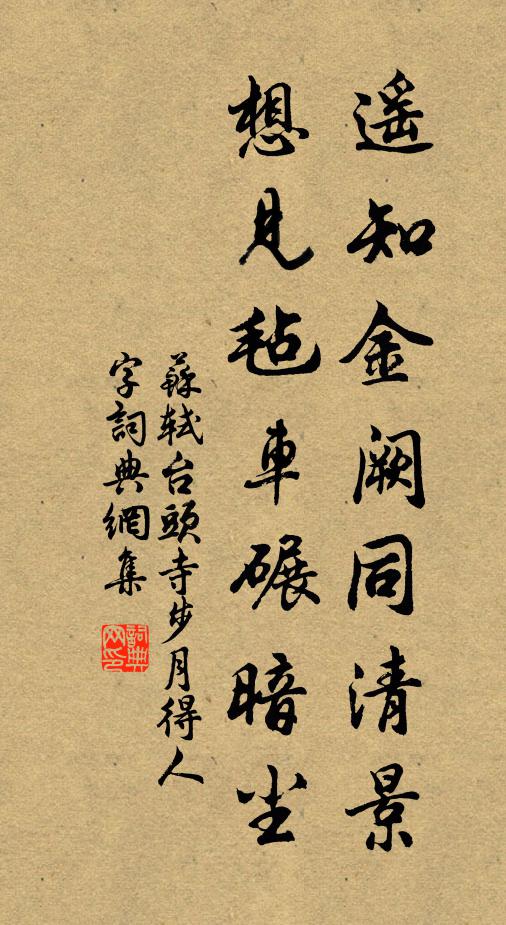 遥知金阙同清景
想見毡車碾暗尘
蘇軾台頭寺步月得人
字詞典網集
詞典网印